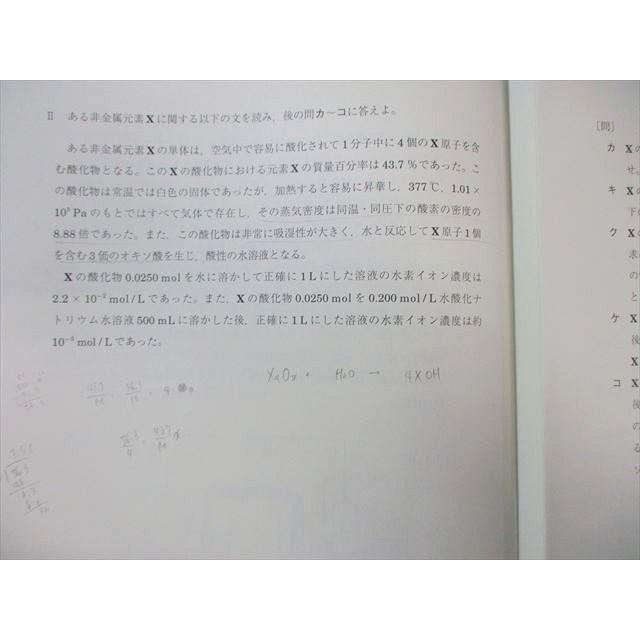 II ある非金属元素Xに関する以下の文を読み，後の問カ〜コに答えよ。
ある非金属元素Xの単体は，空気中で容易に酸化されて1分子中に4個のX原子を含
む酸化物となる。このXの酸化物における元素Xの質量百分率は43.7％であった。こ
の酸化物は常温では白色の固体であったが，加熱すると容易に昇華し，377℃，1.01×
10⁵Paのもとではすべて気体で存在し，その蒸気密度は同温・同圧下の酸素の密度の
8.88倍であった。また，この酸化物は非常に吸湿性が大きく，水と反応してX原子1個
を含む3価のオキソ酸を生じ，酸性の水溶液となる。
Xの酸化物0.0250 molを水に溶かして正確に1Lにした溶液の水素イオン濃度は
2.2×10⁻² mol/Lであった。また，Xの酸化物0.0250 molを0.200 mol/L水酸化ナ
トリウム水溶液500 mLに溶かした後，正確に1Lにした溶液の水素イオン濃度は約
mol/Lであった。
H₂O → 4XOH
〔問〕
カ Xの
せ。
キ Xの
下の
ク Xの
ケ X
後
X
コ X
後
の
る
ソ